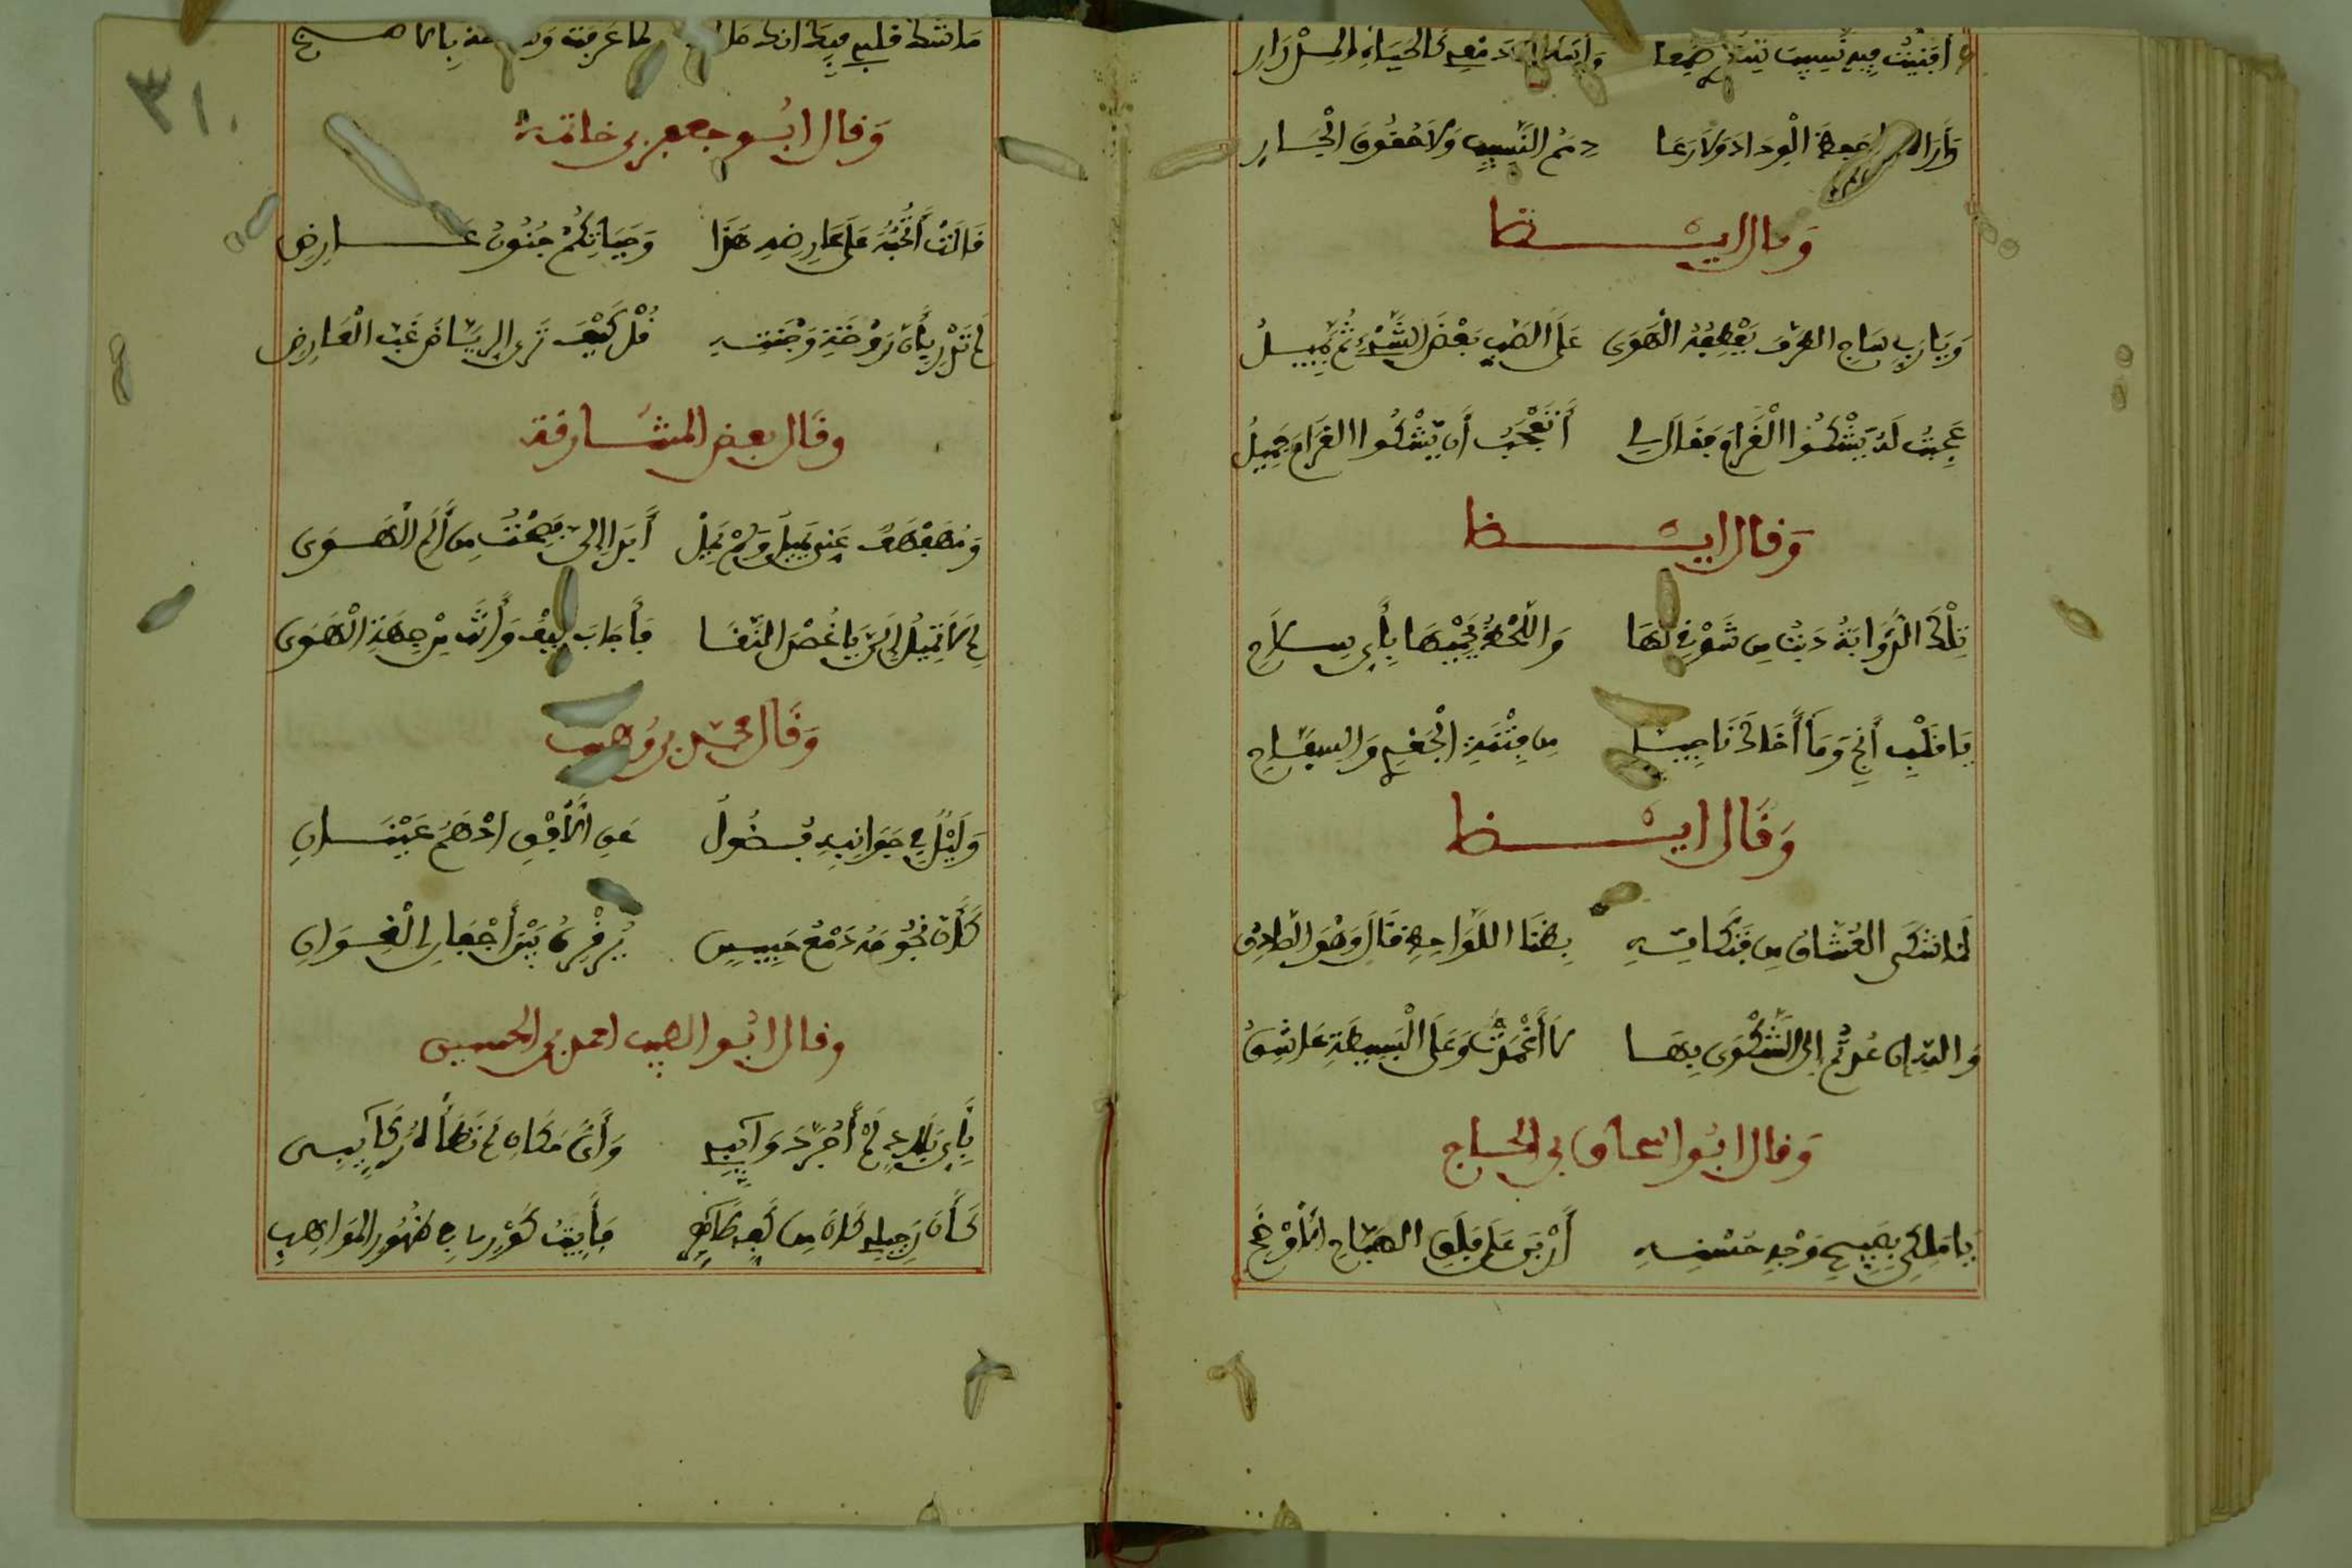 أفنيت فيه نسيب
وأراه حفظ الوداد ولا رعا ذمم النسيب ولا حقوق الجار
وقال أيضا
ويا رب ساجي الطرف يعطفه الهوى على الصب بعض الشيء ثم يميل
عجبت له يشكوا الغرام فقال لي أتعجب أن يشكوا الغرام جميل
وقال أيضا
تلك الذؤابة ذبت من شوقي لها واللحظ يحميها بأي سلاح
يا قلب أنج وما أخالك ناجيا من فتنة الجعدي والسفاح
وقال أيضا
لما شكى العشاق من فتكاته بظبا اللواحظ قال وهو الصادق
والله إن عدتم إلى الشكوى بها لا أغمدت وعلى البسيطة عاشق
وقال أبوا اسحاق بن الحاج
يا ملكي بصبح وجه حسنه أربى على فلق الصباح الأوضح
ما شك قلبي فيك أنك لما عرفت
وقال ابو جعفر بن خاتمة
قالت أتحبه على عارضه هذا وحياتكم جنون عارض
لم تدر بأن روضة وجنته قل كيف ترى الرياض غب العارض
وقال بعض المشارقة
ومهفهف عني يميل ولم يمل أبدا إلي فصحت من ألم الهوى
لم لا تميل إلي يا غصن النقا فأجاب كيف وأنت من جهة الهوى
وقال محمد بن وهيب
وليل في جوانبه فضول عن الأفق ادهم عينان
كأن نجومه دمع حبيس يرقرق بين أجفان الغوان
وقال ابو الطيب احمد بن الحسين
بأي بلاد لم أجر ذوائبي وأي مكان لم تطأه ركائبي
كأن رحيلي كان من كف طاهر فأثبت كوري في ظهور المواهب
٣١٠